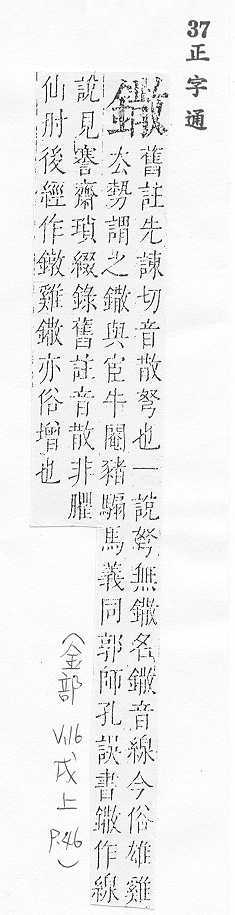 37
正字通
鏾
舊註先諫切音散弩也一說弩無鏾名鏾音線今俗雄雞
厺勢謂之鏾與宦牛閹豬騸馬義同郭師孔誤書鏾作線
說見謇齋瑣綴錄舊註音散非臞
仙肘後經作鐓雞鏾亦俗增也
(金部 V.16 戌上 P.46)